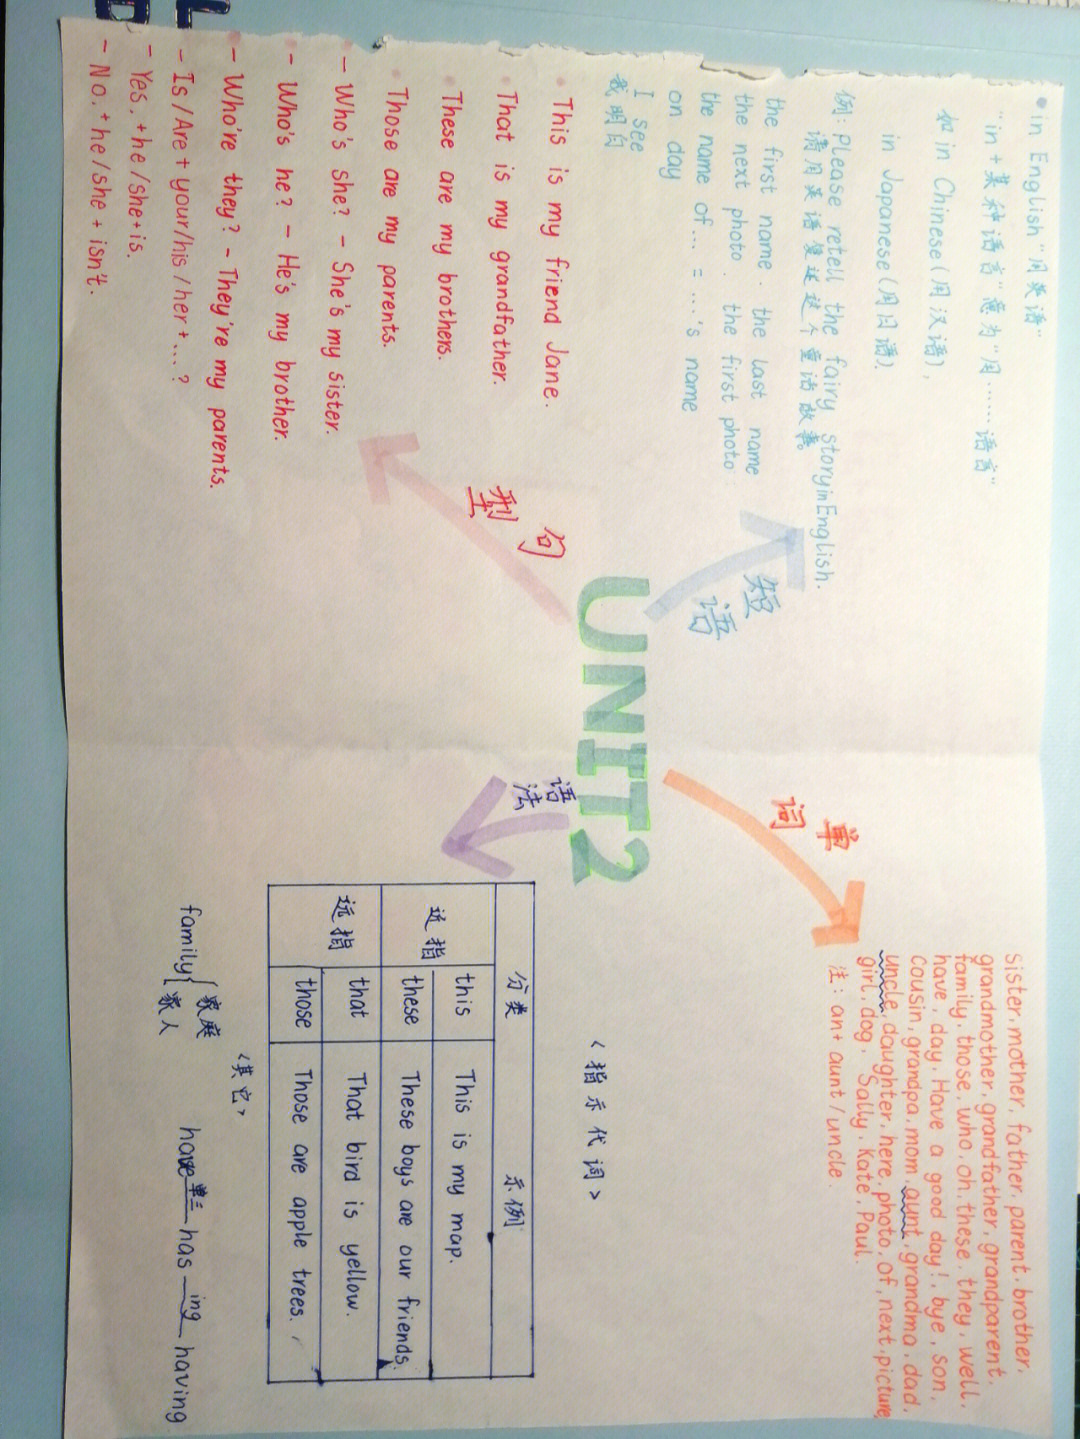 UNIT2
短语
• in English "用英语"
"in + 某种语言"意为"用……语言"
如 in Chinese (用汉语),
in Japanese (用日语).
例: Please retell the fairy story in English.
请用英语复述这个童话故事。
the first name . the last name
the next photo . the first photo
the name of... = ...'s name
on day
I see
我明白
句型
• This is my friend Jane.
• That is my grandfather.
• These are my brothers.
• Those are my parents.
• — Who's she? – She's my sister.
• – Who's he? – He's my brother.
• – Who're they? – They're my parents.
– Is/Are + your/his/her + ... ?
– Yes, + he/she + is.
– No. + he/she + isn't.
单词
sister, mother, father, parent, brother,
grandmother, grandfather, grandparent,
family, those, who, oh, these, they, well,
have, day, Have a good day!, bye, son,
cousin, grandpa, mom, aunt, grandma, dad,
uncle, daughter, here, photo, of, next, picture,
girl, dog, Sally, Kate, Paul.
注: an+ aunt/uncle.
语法
<指示代词>
分类 示例
近指 this This is my map.
these These boys are our friends.
远指 that That bird is yellow.
those Those are apple trees.
<其它>
family { 家庭
家人
have 单三 has ing having